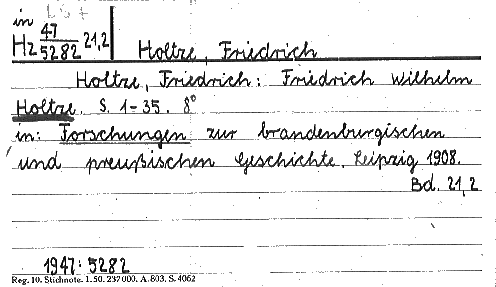 in
Hz 47/5282 21,2 Holtze, Friedrich
Holtze, Friedrich: Friedrich Wilhelm
Holtze. S. 1-35. 8°
in: Forschungen zur brandenburgischen
und preußischen Geschichte. Leipzig 1908.
Bd. 21,2
1947: 5282
Reg. 10. Stichnote. 1.50. 237000. A. 803. S. 4062